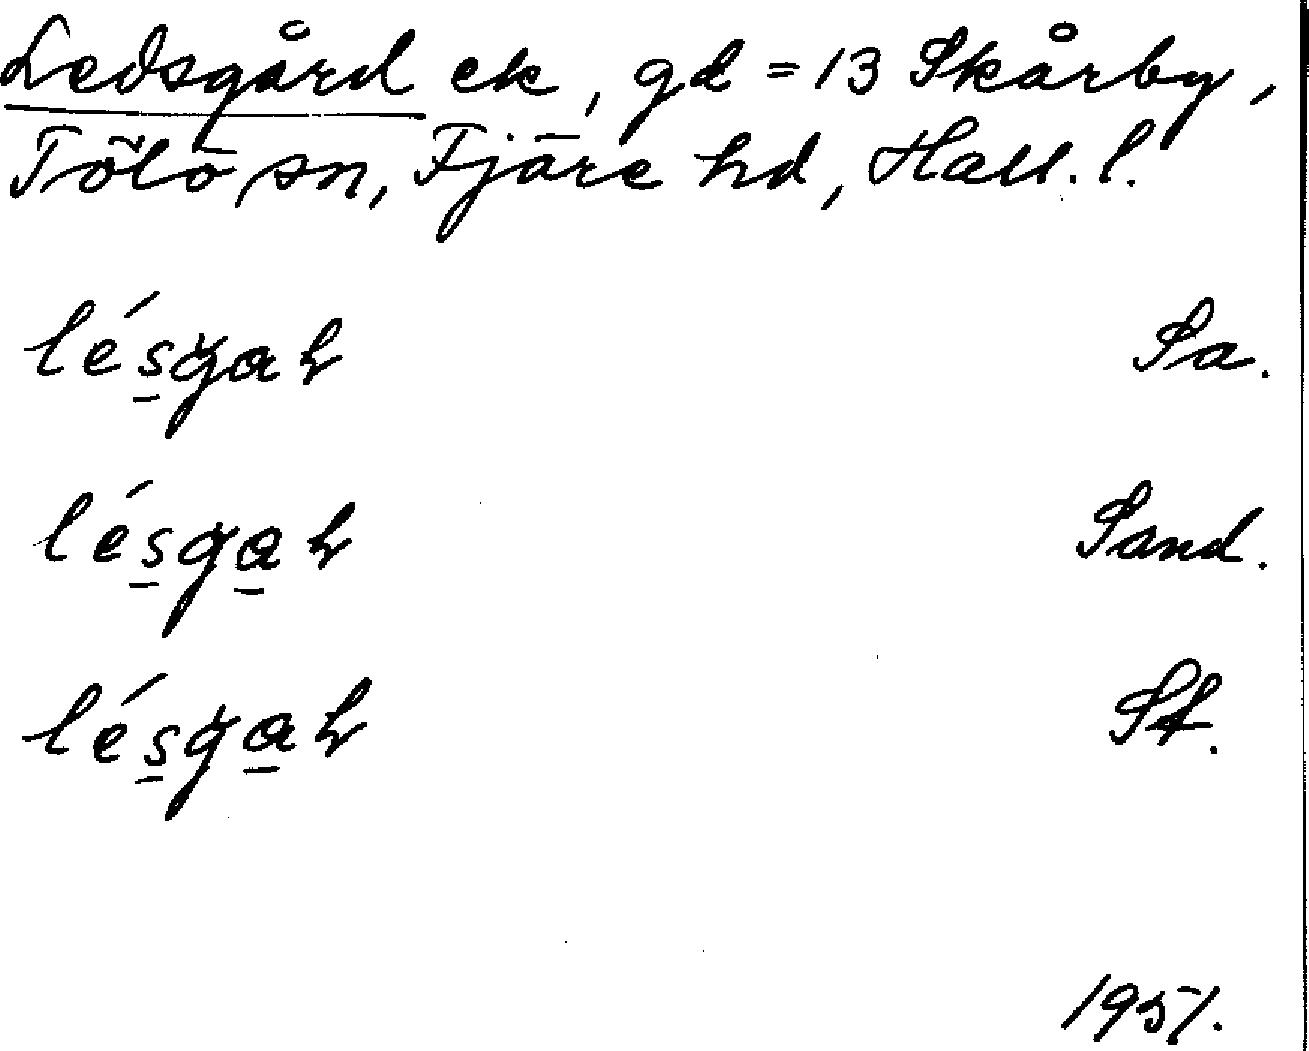 Ledsgård ek, gd = 13 Skårby,
Tölö sn, Fjäre hd, Hall. l.
lésgaɫ Sa.
lésgaɫ Sand.
lésgaɫ St.
1951.